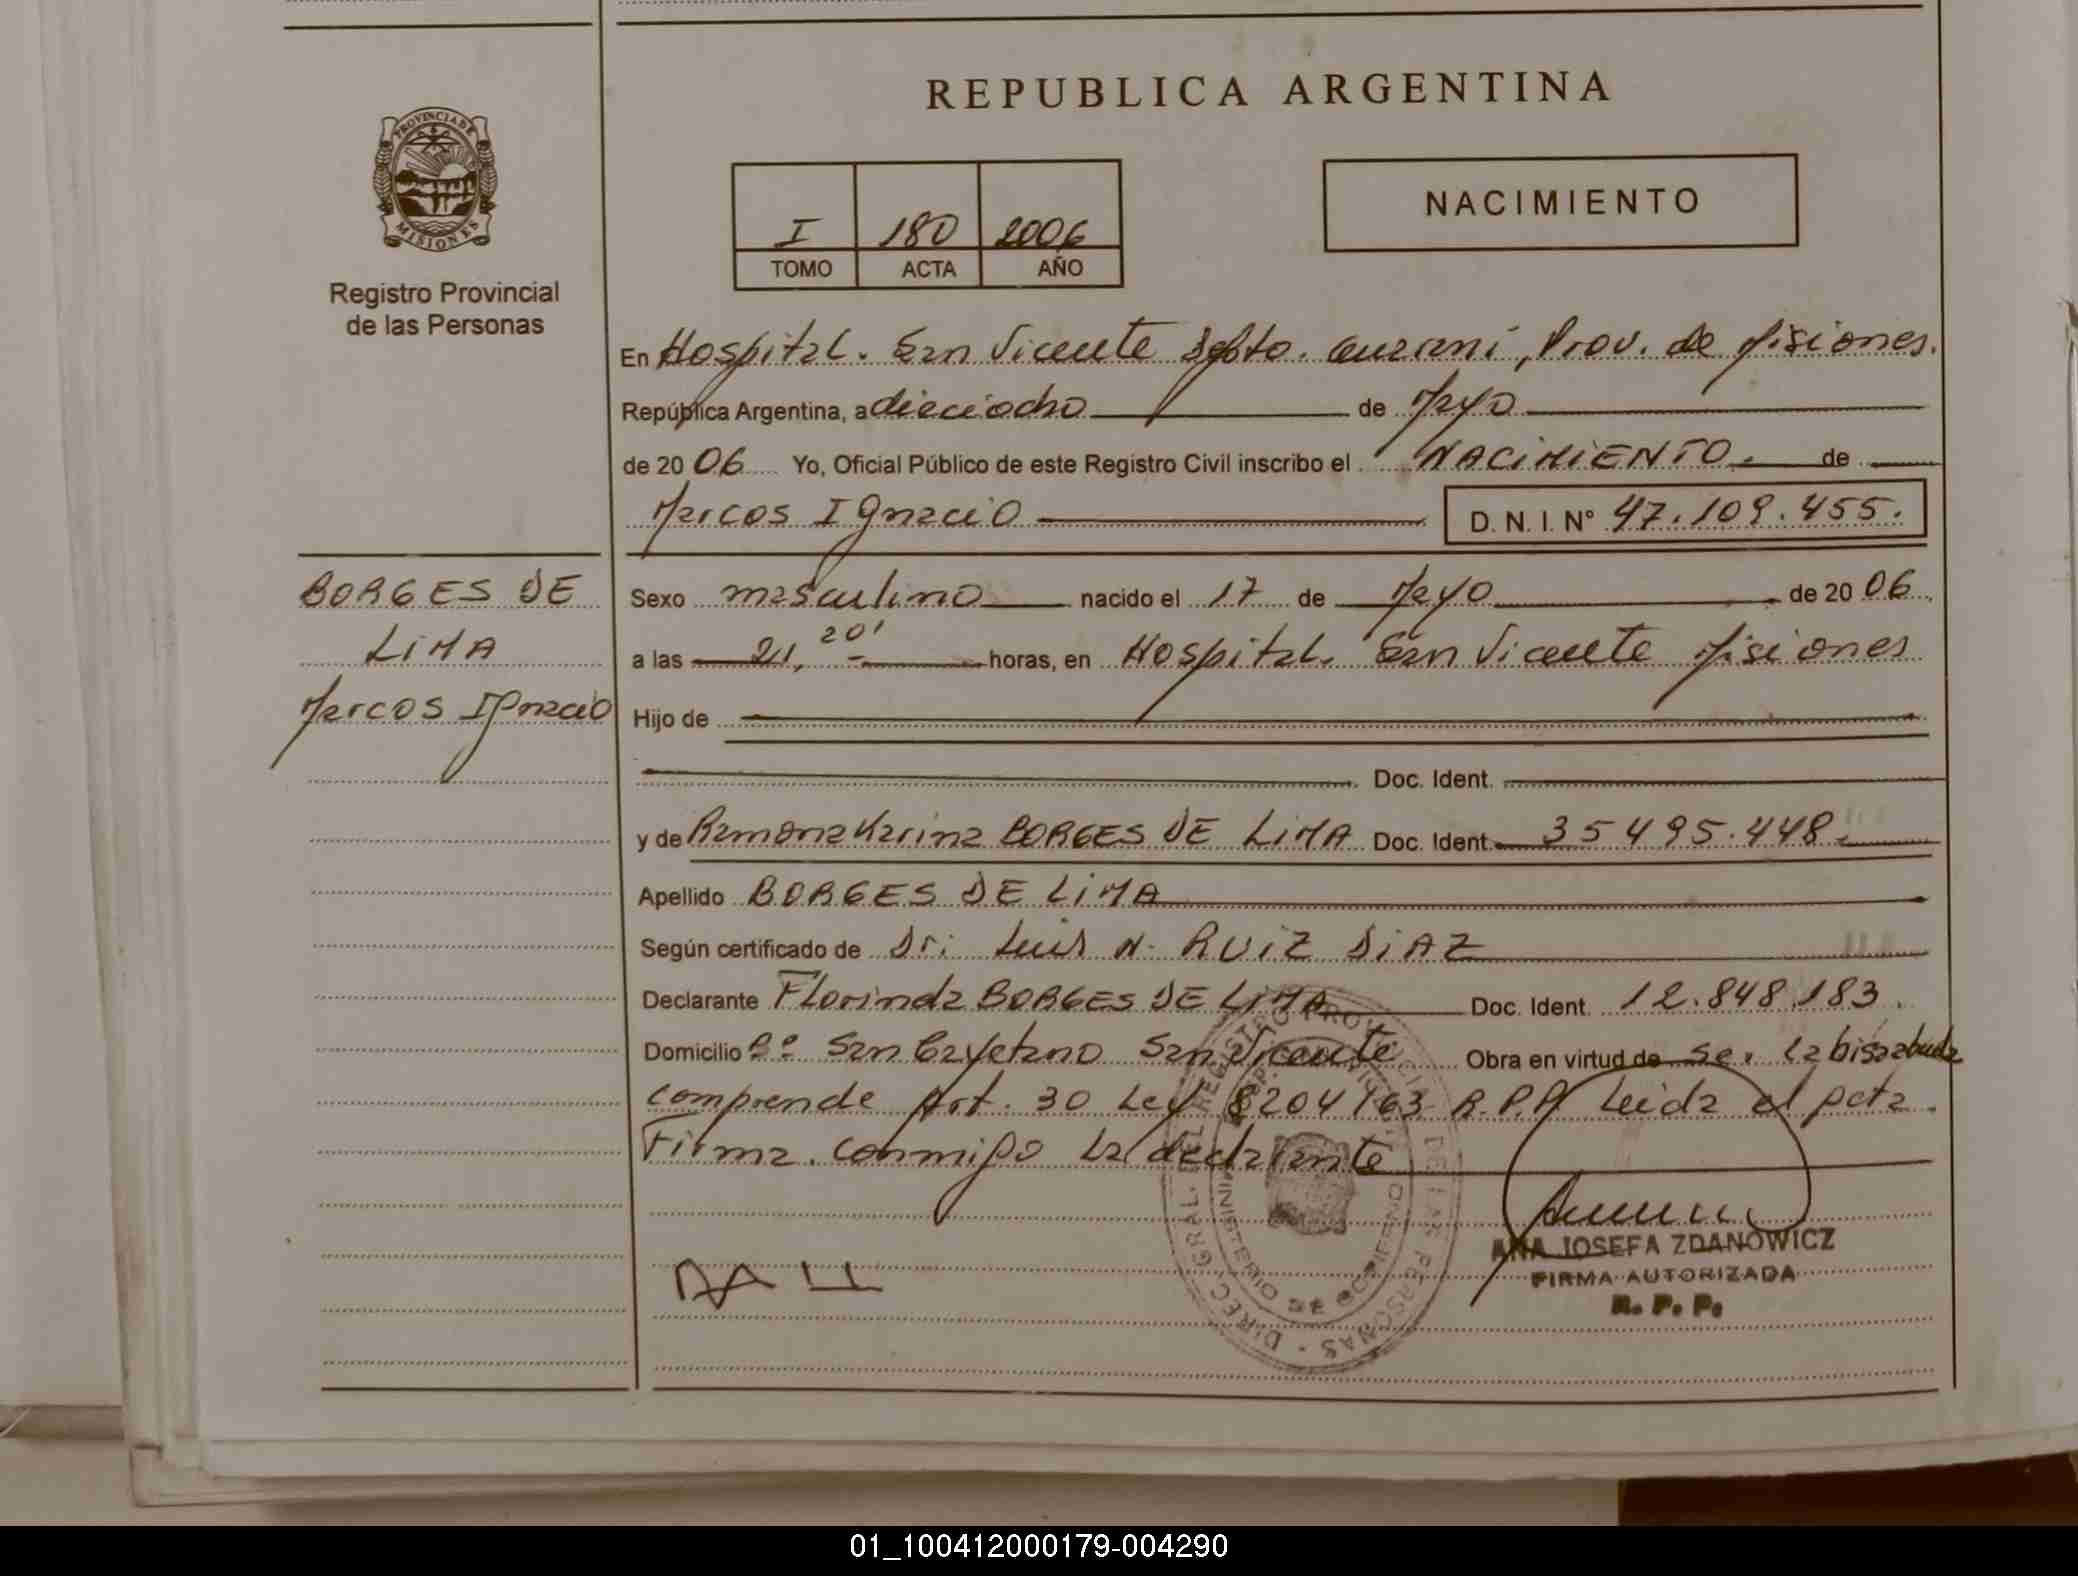 REPUBLICA ARGENTINA
PROVINCIA DE MISIONES
Registro Provincial
de las Personas
I 180 2006
TOMO ACTA AÑO
NACIMIENTO
En Hospital. San Vicente Dpto. Guaraní, Prov. de Misiones.
República Argentina, a dieciocho de Mayo
de 2006 Yo, Oficial Público de este Registro Civil inscribo el NACIMIENTO. de
Marcos Ignacio D. N. I. Nº 47.109.455.
BORGES DE
LIMA
Marcos Ignacio
Sexo masculino nacido el 17 de Mayo de 2006
a las 21, 20' horas, en Hospital. San Vicente Misiones
Hijo de
Doc. Ident.
y de Ramona Karina BORGES DE LIMA Doc. Ident. 35495.448.
Apellido BORGES DE LIMA
Según certificado de Dr: Luis N. RUIZ DIAZ
Declarante Florinda BORGES DE LIMA Doc. Ident. 12.848.183.
Domicilio Bº San Cayetano San Vicente Obra en virtud de se. la bisabuela
comprende Art. 30 Ley 8204/63 R.P.P. Leida el acta.
Firma. conmigo la declarante
DIREC. GRAL. DEL REGISTRO PROVINCIAL DE LAS PERSONAS
ANA JOSEFA ZDANOWICZ
FIRMA AUTORIZADA
R. P. P.
01_100412000179-004290